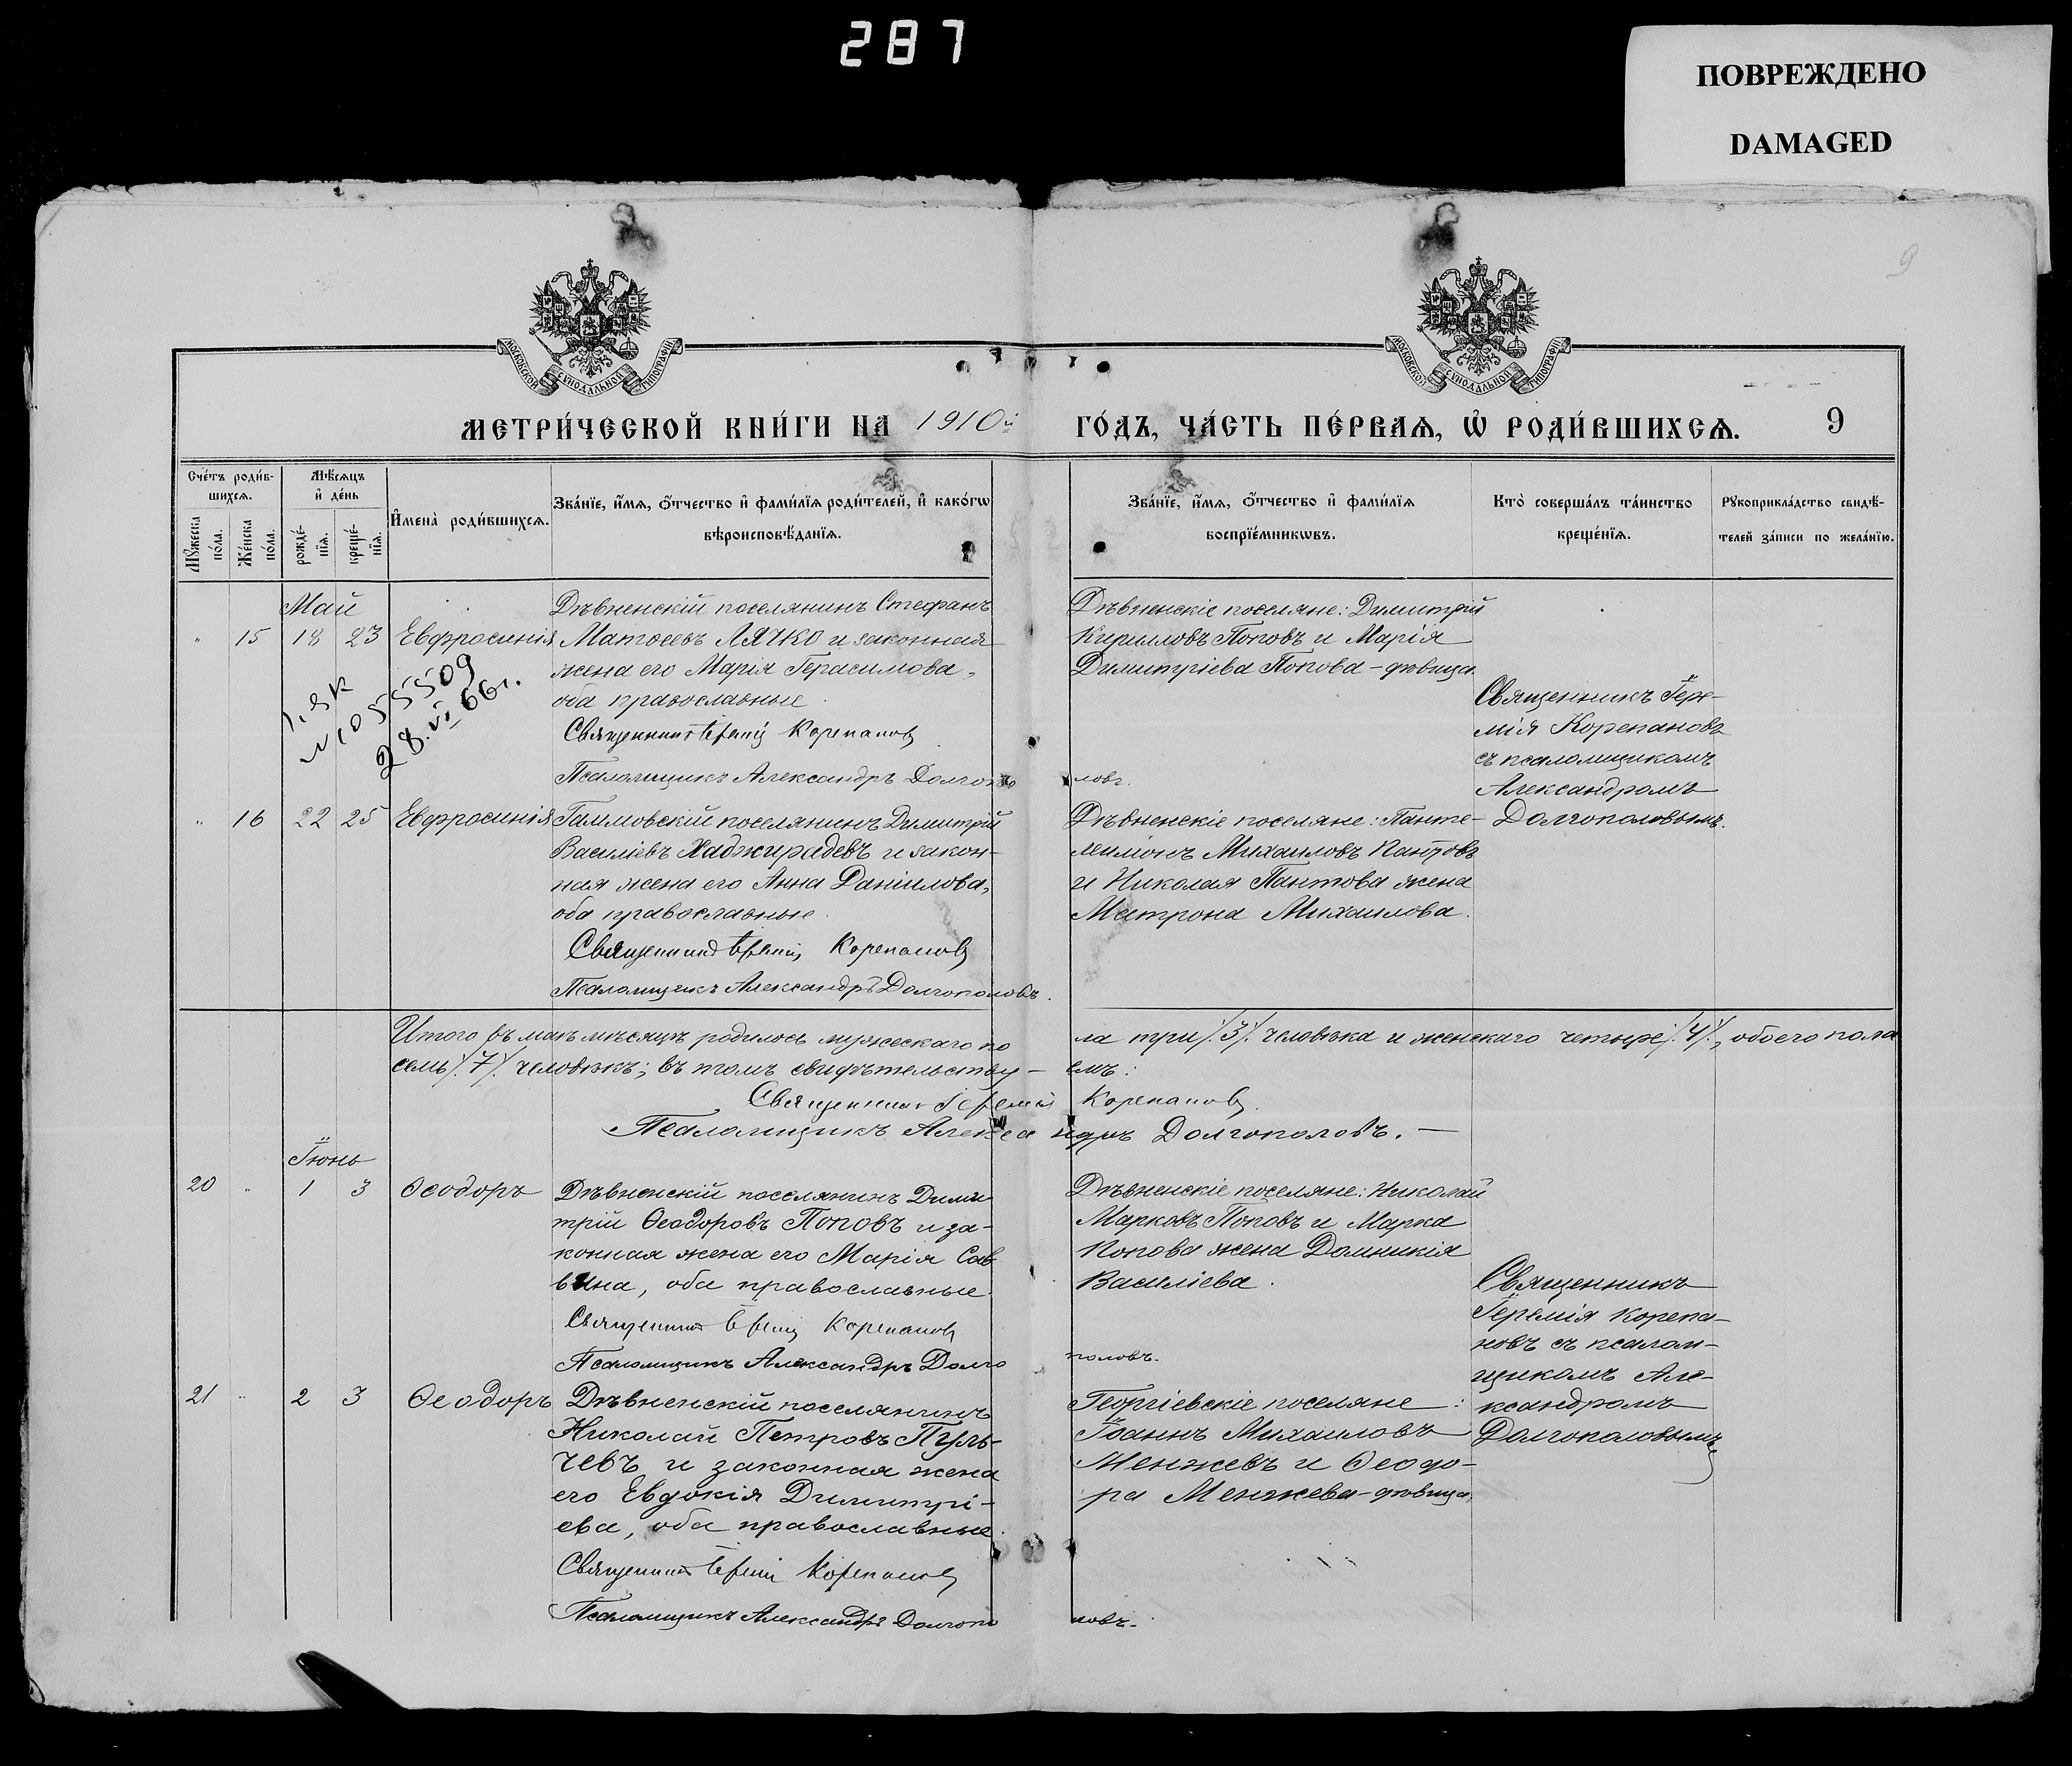 287
ПОВРЕЖДЕНО
DAMAGED
9
МОСКОВСКОЙ СѴНОДАЛЬНОЙ ТИПОГРАФІИ
МОСКОВСКОЙ СѴНОДАЛЬНОЙ ТИПОГРАФІИ
МЕТРИ́ЧЕСКОЙ КНИ́ГИ НА 1910й ГО́ДЪ, ЧА́СТЬ ПЕ́РВАѦ, Ѡ РОДИ́ВШИХСѦ. 9
Сче́тъ роди́в-
шихсѧ.
Мꙋ́жеска по́ла.
Же́нска по́ла.
Мѣ́сѧцъ
и де́нь
рожде́-
нїѧ.
креще́-
нїѧ.
Имена̀ роди́вшихсѧ.
Зва́нїе, и́мѧ, о́тчество и фами́лїѧ роди́телей, и како́гѡ
вѣроисповѣ́данїѧ.
Зва́нїе, и́мѧ, о́тчество и фами́лїѧ
воспрїе́мникѡвъ.
Кто̀ соверша́лъ та́инство
креще́нїѧ.
Рꙋкоприкла́дство свидѣ́-
телей за́писи по жела́нїю.
Май
" 15 18 23 Евфросинія
Дѣвненскій поселянинъ Стефанъ
Матѳеевъ ЛЯЧКО и законная
жена его Марія Герасимова,
оба православные.
Священникъ Іеремій Корепановъ
Псаломщикъ Александръ Долгополовъ.
N1055509
28.VI 66г.
Дѣвненскіе поселяне: Димитрій
Кирилловъ Поповъ и Марія
Димитріева Попова - дѣвица.
Священникъ Іере-
мія Корепановъ
съ псаломщикомъ
Александромъ
Долгополовымъ.
" 16 22 25 Евфросинія
Гаммовскій поселянинъ Димитрій
Василіевъ Хаджирадевъ и закон-
ная жена его Анна Даніилова,
оба православные.
Священникъ Іеремій Корепановъ
Псаломщикъ Александръ Долгополовъ.
Дѣвненскіе поселяне: Панте-
леимонъ Михаиловъ Пантовъ
и Николая Пантова жена
Матрона Михаилова.
Итого въ маѣ мѣсяцѣ родилось мужескаго пола три /.3/. человѣка и женскаго четыре /.4/., обоего пола
семь /.7/. человѣкъ; въ томъ свидѣтельствуемъ:
Священникъ Іеремій Корепановъ
Псаломщикъ Александръ Долгополовъ. —
Іюнь
20 " 1 3 Ѳеодоръ
Дѣвненскій поселянинъ Дими
трій Ѳеодоровъ Поповъ и за-
конная жена его Марія Сав
вина, оба православные.
Священникъ Іеремій Корепановъ
Псаломщикъ Александръ Долгополовъ.
Дѣвненскіе поселяне: Николай
Марковъ Поповъ и Марка
Попова жена Домникія
Василіева.
Священникъ
Іеремія Корепа-
новъ съ псалом-
щикомъ Але-
ксандромъ
Долгополовымъ
21 " 2 3 Ѳеодоръ
Дѣвненскій поселянинъ
Николай Петровъ Пуль-
чевъ и законная жена
его Евдокія Димитрі-
ева, оба православные.
Священникъ Іеремій Корепановъ
Псаломщикъ Александръ Долгополовъ.
Георгіевскіе поселяне:
Іоаннъ Михаиловъ
Менжевъ и Ѳеодо-
ра Менжева - дѣвица.